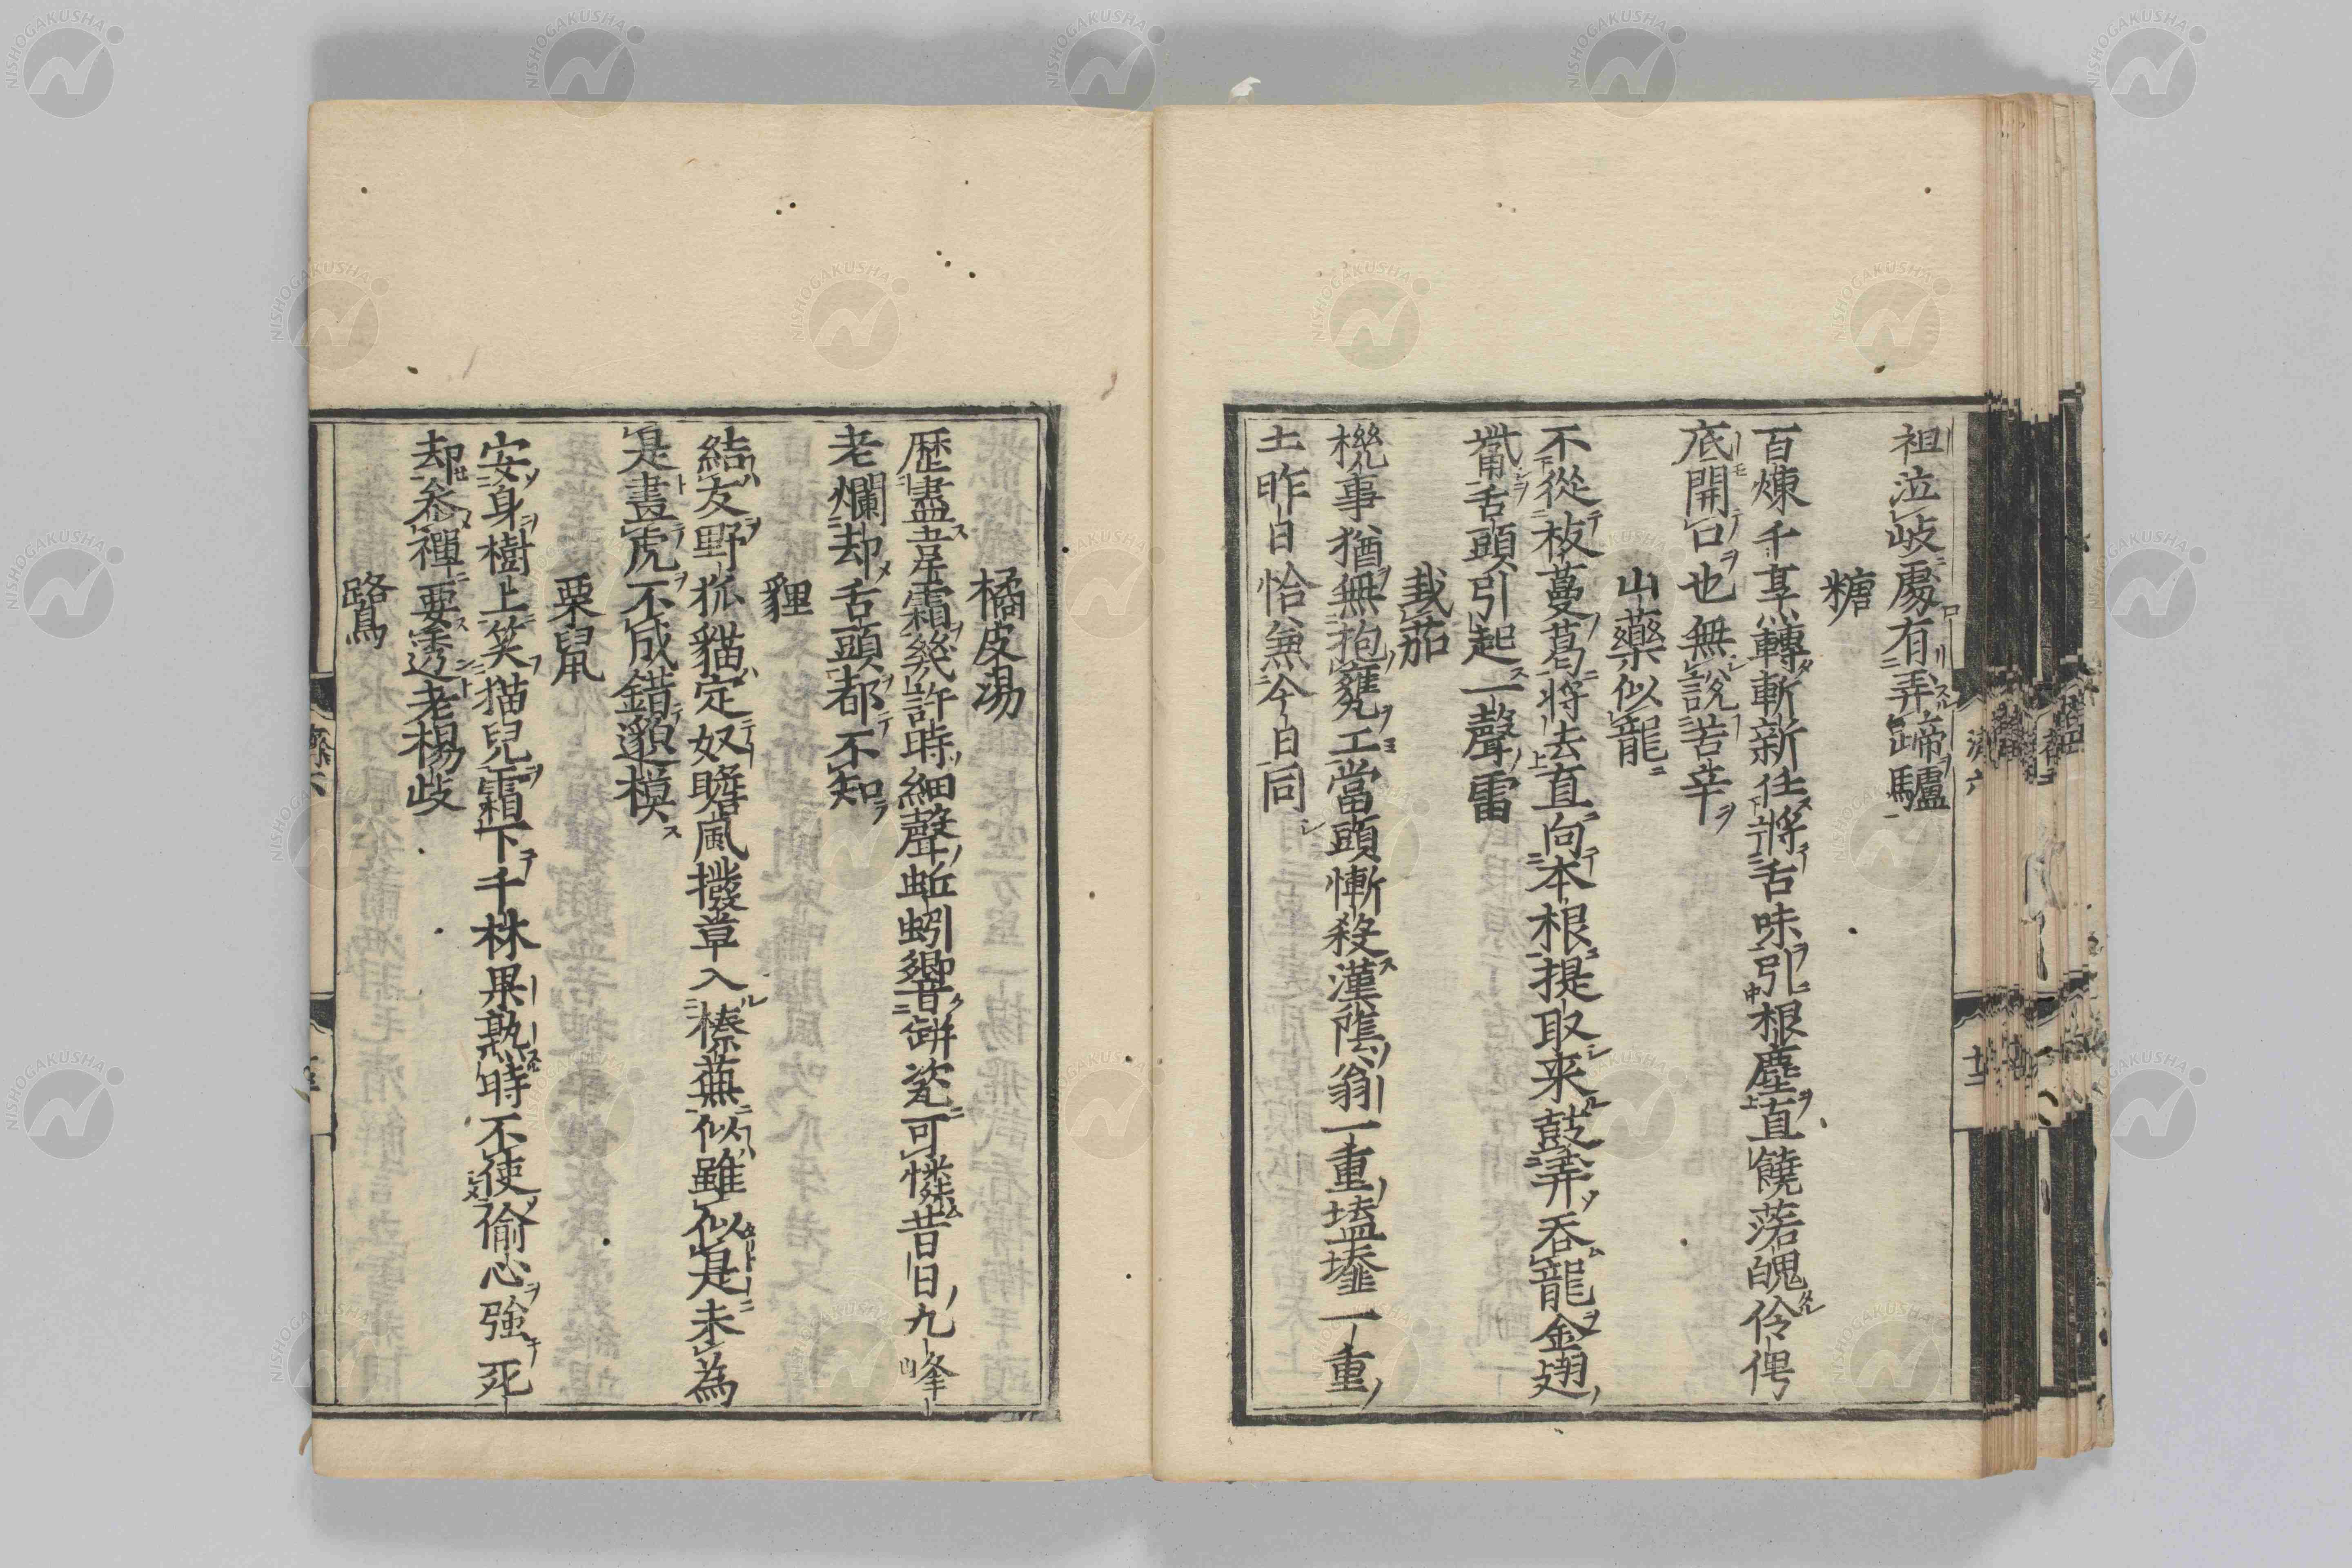 祖泣岐處有弄蹄驢
糖
百煉千烹轉斬新住將舌味引根塵直饒落魄伶俜
底開口也無説苦辛
山藥似龍
不從枝蔓葛將去直向本根提取来鼓弄吞龍金翅
舌頭引起一聲雷
栽茄
機事猶無抱甕工當頭慚殺漢陰翁一重塩一重
土昨日恰無今日同
橘皮湯
歴盡星霜幾許時細聲蚯蚓響缾瓷可憐昔日九峰
老爛却舌頭都不知
貍
結友野狐貓定奴瞻風撥草入榛蕪似雖似是未為
是畫虎不成錯邈模
栗鼠
安身樹上笑猫兒霜下千林果熟時不使偷心強死
却参禪要透老楊岐
鷺
NISHOGAKUSHA